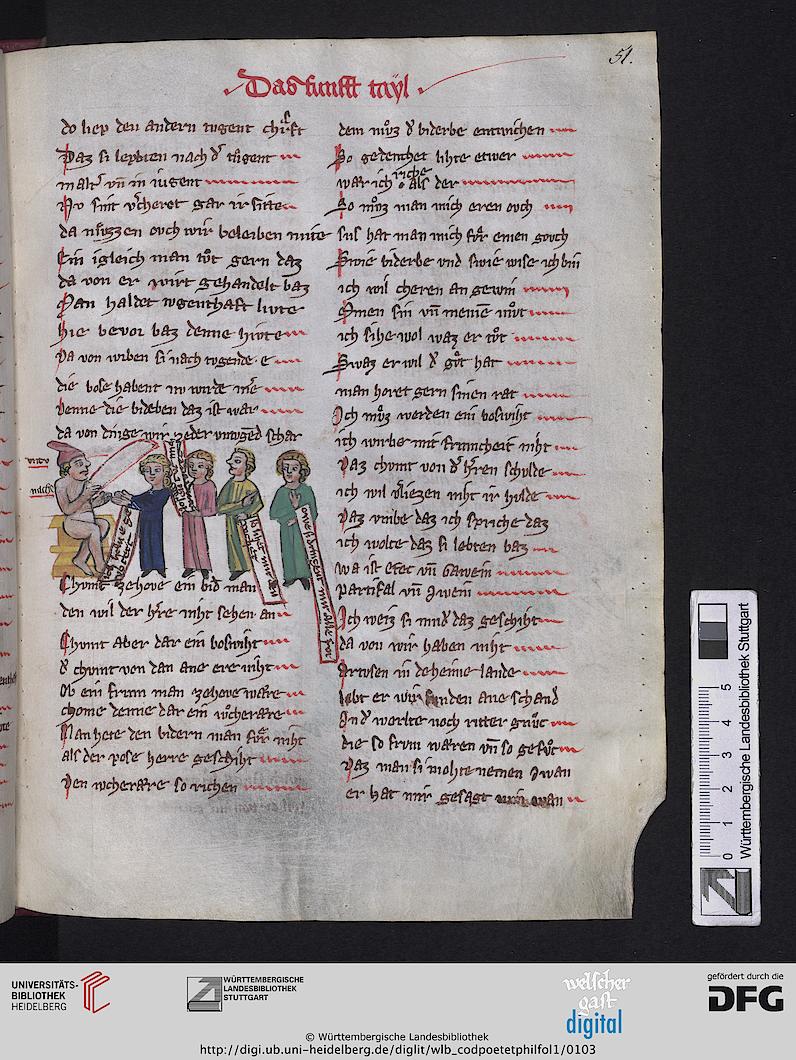 51.
Das funfft tayl
do hep den andern tugent chraft
Daz si lepbten nach dˢ tugent
in altˢ vn̄ in iugent
Nv sint vˢcheret gar ir sitte
da mu̓zzen ovch wir beleiben mite
Ein igleich man tv̊t gern daz
da von er wirt gehandelt baz
Man haldet tvgenthaft livte
hie bevor baz denne hivte
Da von wrben si nach tvgende · e
die bose habent nv wirde mˢe
Denne die bideben daz ist war
da von dinge wir zeder vntvgēd schar
Chvmt zehove ein bidˢ man
den wil der hˢre niht sehen an
Chvmt Aber dar ein boswiht
dˢ chvmt von dan ane ere niht
Ob ein frvm man zehove wære
chome denne dar ein wͦcherære
Man hete den bidern man fvͤr niht
als der pose herre geschiht
Den wcherære so richen
dem mvͦz dˢ biderbe entwichen
So gedenchet lihte etwer
wær ich riche als der
So mvͦz man mich eren ovch
sus hat man mich fvͤr einen govch
Swie biderbe vnd swie wise ich bin
ich wil cheren an gewin
Minen sin vn̄ meinen mvͦt
ich sihe wol waz er tvͦt
Swaz er wil dˢ gvͦt hat
man horet gern sinen rat
Ich mvͦz werden ein boswiht
ich wirbe mit frvmcheit niht
Daz chvmt von dˢ hˢren schvlde
ich wil vˢliezen niht ir hvlde
Daz vmbe daz ich spriche daz
ich wolte daz si lebten baz
wa ist erec vn̄ Gawein
partifal vn̄ Jwein
Ich weiz si nindˢ daz geschiht
da von wir haben niht
Artvsen in deheime lande
lebt er wir fvnden ane schand
In dˢ worlte noch ritter gnvͦc
die so frvm waren vn̄ so gefvͦc
Daz man si mohte nemen Jwan
er hat mir gesagt
0 1 2 3 4 5
Württembergische Landesbibliothek Stuttgart
UNIVERSITÄTS-
BIBLIOTHEK
HEIDELBERG
WÜRTTEMBERGISCHE
LANDESBIBLIOTHEK
STUTTGART
welscher
gast
digital
gefördert durch die
DFG
© Württembergische Landesbibliothek
http://digi.ub.uni-heidelberg.de/diglit/wlb_codpoetetphilfol1/0103